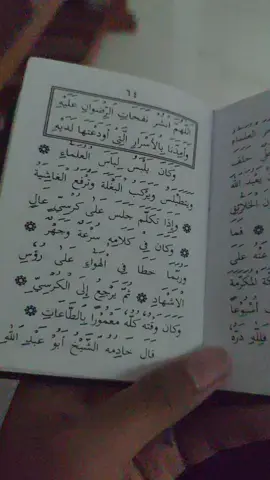 ٦٤
اَللّٰهُمَّ انْشُرْ نَفَحَاتِ الرِّضْوَانِ عَلَيْهِ
وَأَمِدَّنَا بِالْأَسْرَارِ الَّتِي أَوْدَعْتَهَا لَدَيْهِ
وَكَانَ يَلْبَسُ لِبَاسَ الْعُلَمَاءِ
وَيَتَطَيْلَسُ وَيَرْكَبُ الْبَغْلَةَ وَتُرْفَعُ الْغَاشِيَةُ
وَإِذَا تَكَلَّمَ جَلَسَ عَلَى كُرْسِيٍّ عَالٍ
وَكَانَ فِي كَلَامِهِ سُرْعَةٌ وَجَهْرٌ
وَرُبَّمَا خَطَا فِي الْهَوَاءِ عَلَى رُؤُسِ
الْأَشْهَادِ ثُمَّ يَرْجِعُ إِلَى الْكُرْسِيِّ
وَكَانَ وَقْتُهُ كُلُّهُ مَعْمُورًا بِالطَّاعَاتِ
قَالَ خَادِمُهُ الشَّيْخُ أَبُو عَبْدِ اللّٰهِ